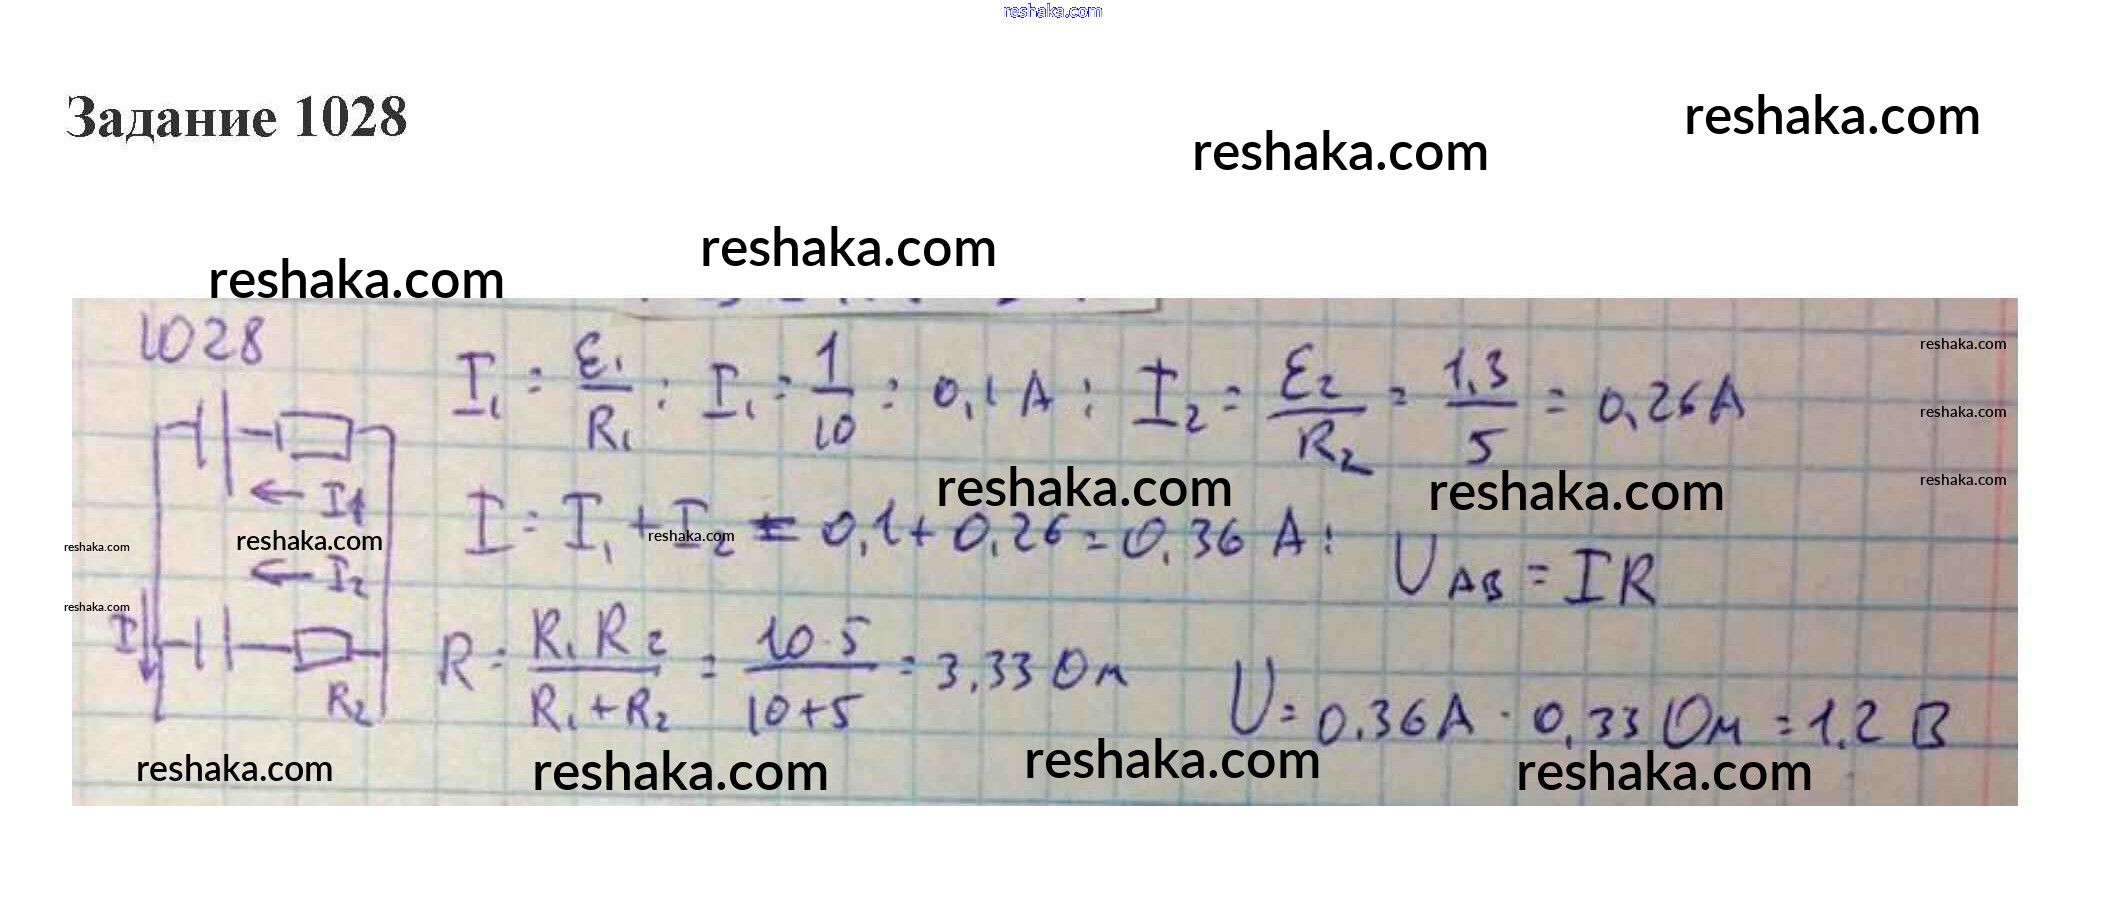 reshaka.com
Задание 1028
reshaka.com
reshaka.com
reshaka.com
reshaka.com
1028
I₁ = ε₁/R₁ ; I₁ = 1/10 = 0,1 A ; I₂ = ε₂/R₂ = 1,3/5 = 0,26 A
reshaka.com
reshaka.com
reshaka.com
reshaka.com
reshaka.com
← I1
I = I₁ + I₂ = 0,1 + 0,26 = 0,36 A ;
reshaka.com
reshaka.com
reshaka.com
U AB = IR
← I₂
reshaka.com
I
R = R₁R₂/R₁+R₂ = 10·5/10+5 = 3,33 Ом
R₂
U = 0,36 A · 0,33 Ом = 1,2 В
reshaka.com
reshaka.com
reshaka.com
reshaka.com